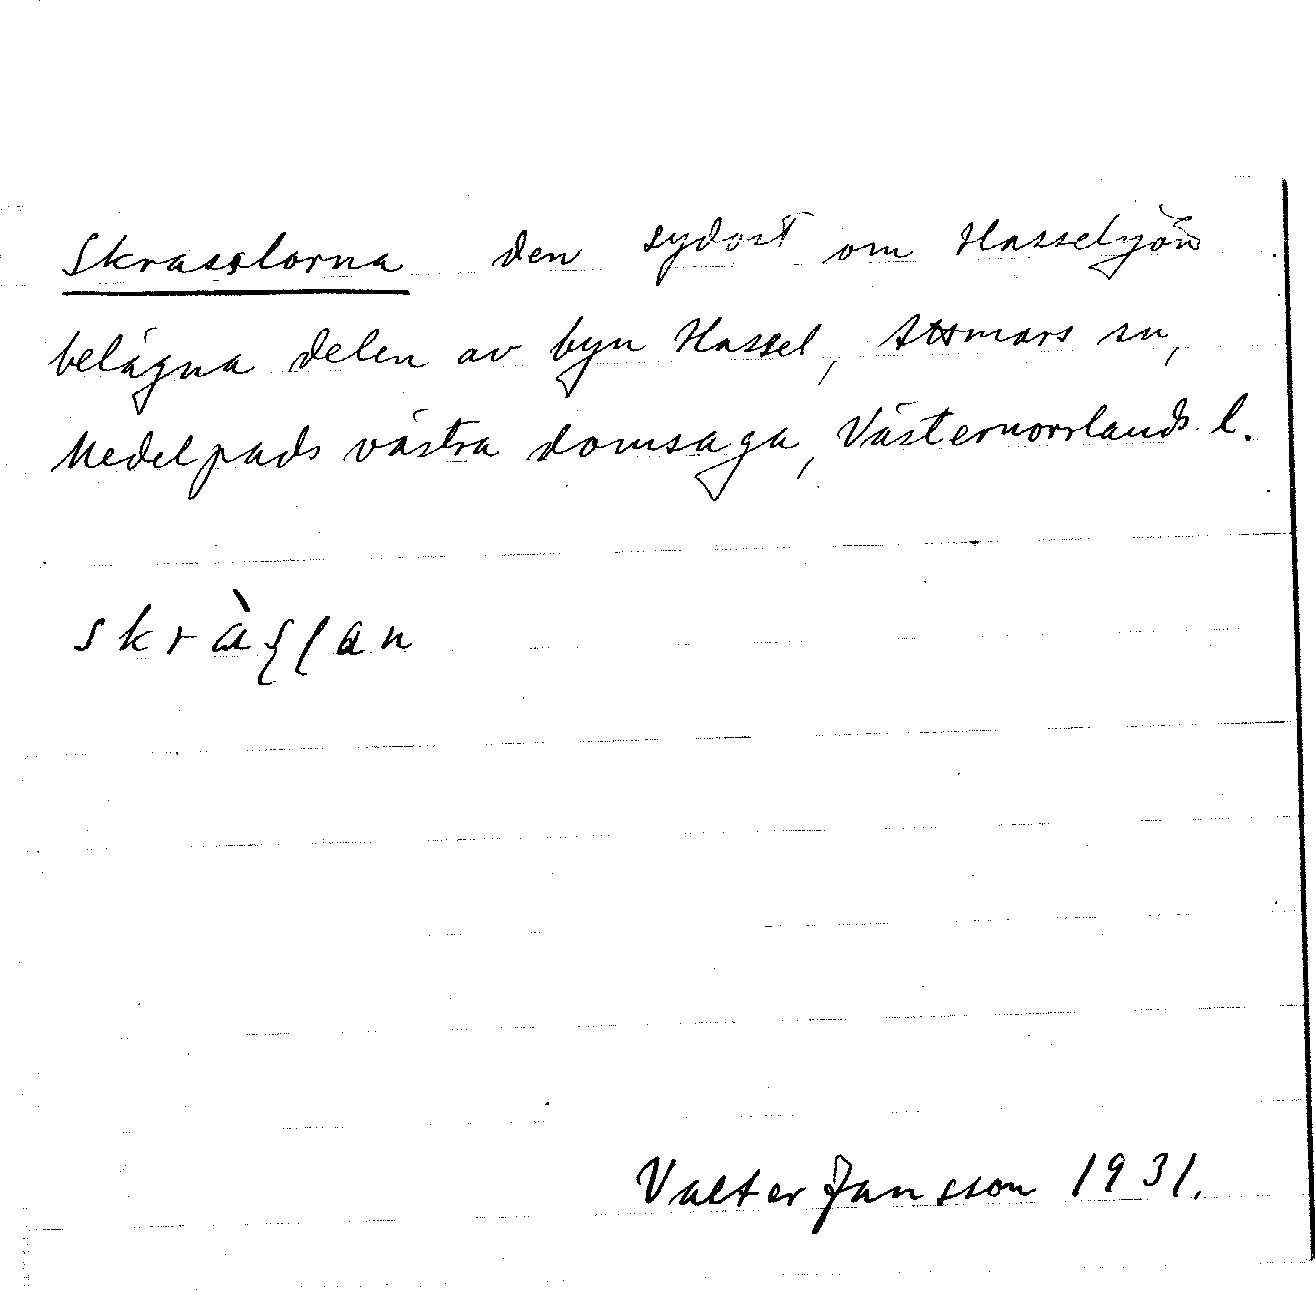 Skrasslorna den sydost om Hasselsjön
belägna delen av byn Hassel, Attmars sn,
Medelpads västra domsaga, Västernorrlands l.
skràʂlan
Valter Jansson 1931.